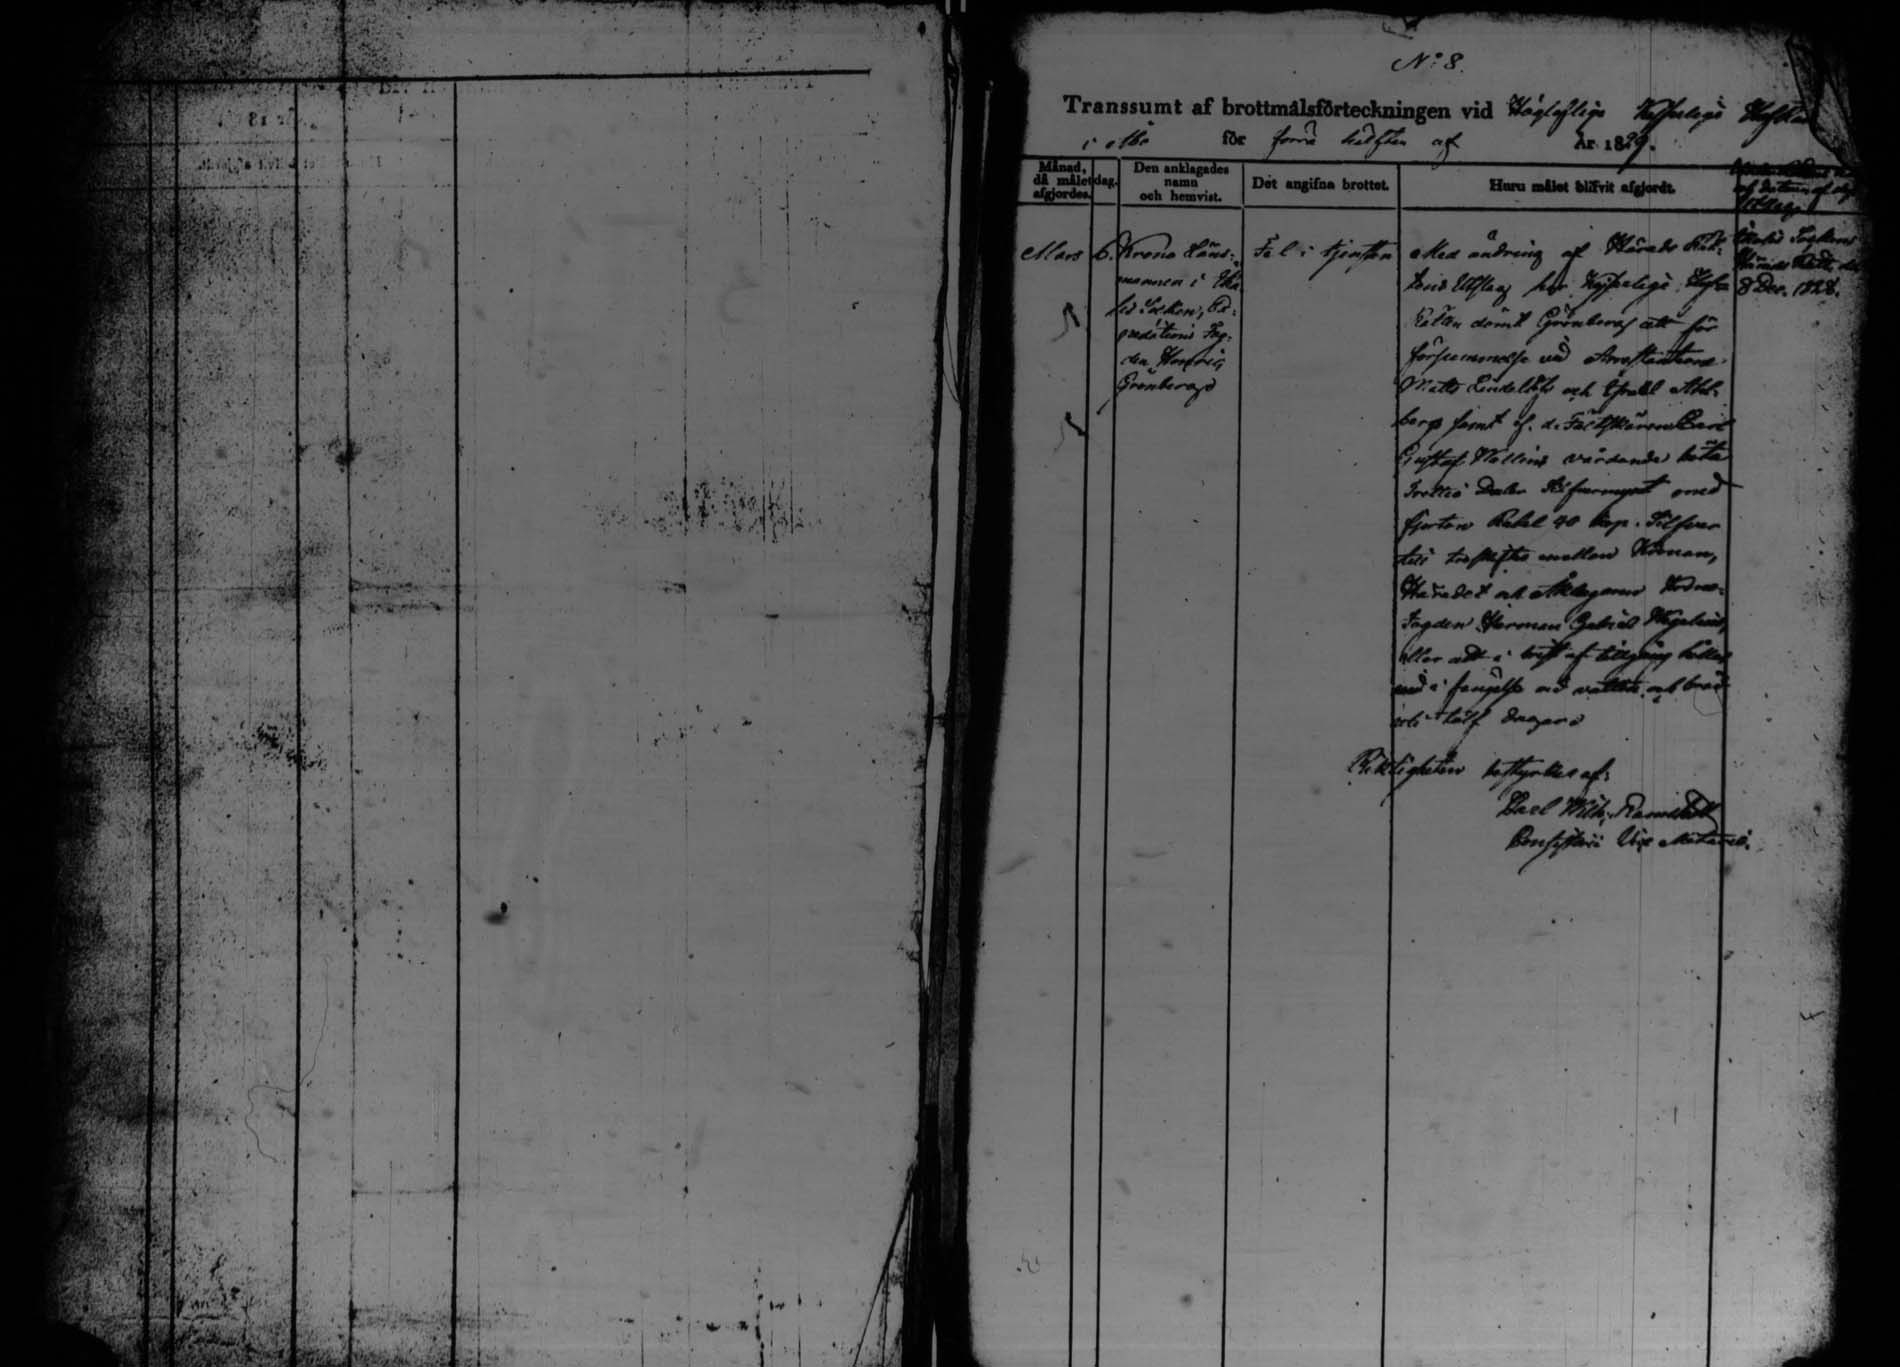 N:o 8.
Transsumt af brottmålsförteckningen vid Höglofliga Kejserliga Hofrätten
i Åbo för förra hälften af År 1829.
Månad, då målet afgjordes.
dag.
Den anklagades namn och hemvist.
Det angifna brottet.
Huru målet blifvit afgjordt.
Mars
6.
Krono Läns-
mannen i
Socken, Ex-
peditions Fog-
den Henric
Grönberg
Fel i tjensten
Med ändring af Härads Rät-
tens Utslag har Kejserliga Hof
Rätten dömt Grönberg att för
försummelse vid Arrestanterne
Matts Lindelöfs och Israel Ahl-
bergs samt f. d. Fältskären Carl
Gustaf Wallins vårdande böta
Trettio Daler Silfvermynt med
fjorton Rubel 40 kop. Silfver
till treskiftes mellan Kronan,
Häradet och Åklagaren Krono-
Fogden Herman Gabriel
eller att i brist af tillgång hållas
i fängelse vid vatten och bröd
tolf dagar
Sockens
Härads Rätt den
8 Dec. 1828.
Riktigheten bestyrkes af:
Carl Wilh. Ramstedt
Consistorii Vice Notarie.